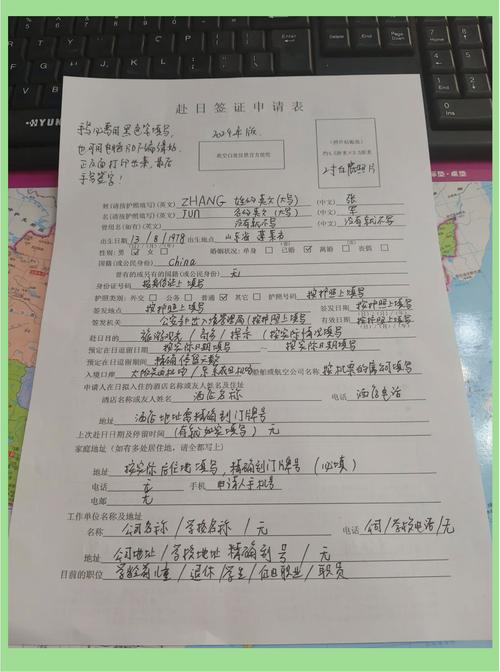 赴日签证申请表
手写必需用黑色笔填写,
也可用电脑PDF编辑好,
正反面打印出来,最后
手写签字!
2024年版
此空白处仅供官方使用
(照片粘贴处)
约4.5厘米×3.5厘米
2寸白底照片
姓(请按护照填写)(英文) ZHANG 姓的英文(大写) (中文) 张
名(请按护照填写)(英文) JUN 名的英文(大写) (中文) 军
曾用名(如有)(英文) 没有就不写 (中文) 没有就不写
出生日期 13/8/1978 出生地点 山东省 某某市
(日)/(月)/(年)
性别:男 女 婚姻状况:单身 已婚 离异 丧偶
国籍(或公民身份) China
曾有的或另有的国籍(或公民身份) 无
身份证号码 按身份证上填写
护照类别:外交 公务 普通 其它 护照号码 按护照上填写
签发地点 按护照上填写 签发日期 按护照上填写
签发机关 公安部出入境管理局(按护照上填写) 有效日期 按护照上填写
赴日目的 旅游观光/商务/探亲 (按实际情况填写)
预定在日逗留日期 按实际日期填写 — 按实际日期填写
预定在日逗留期间 精确停留天数
入境口岸 大阪关西机场/东京成田机场 船舶或航空公司名称 按机票的房间填写
申请人在日拟入住的酒店名称或友人姓名及住址
酒店名称或友人姓名 酒店名称 电话 酒店电话
地址 酒店地址需精确到门牌号
上次赴日日期及停留时间 (有就如实填写) 无
家庭地址(如有多处居住地,请全部写上)
地址 按实际居住地填写,精确到门牌号 (必填)
电话 无 手机 申请人手机号
电邮 无
工作单位名称及地址
名称 公司名称/学校名称/无 电话 公司/学校电话/无
地址 公司地址/学校地址 精确到号/无
目前的职位 学龄前儿童/退休/学生/自由职业/职员
HYUN